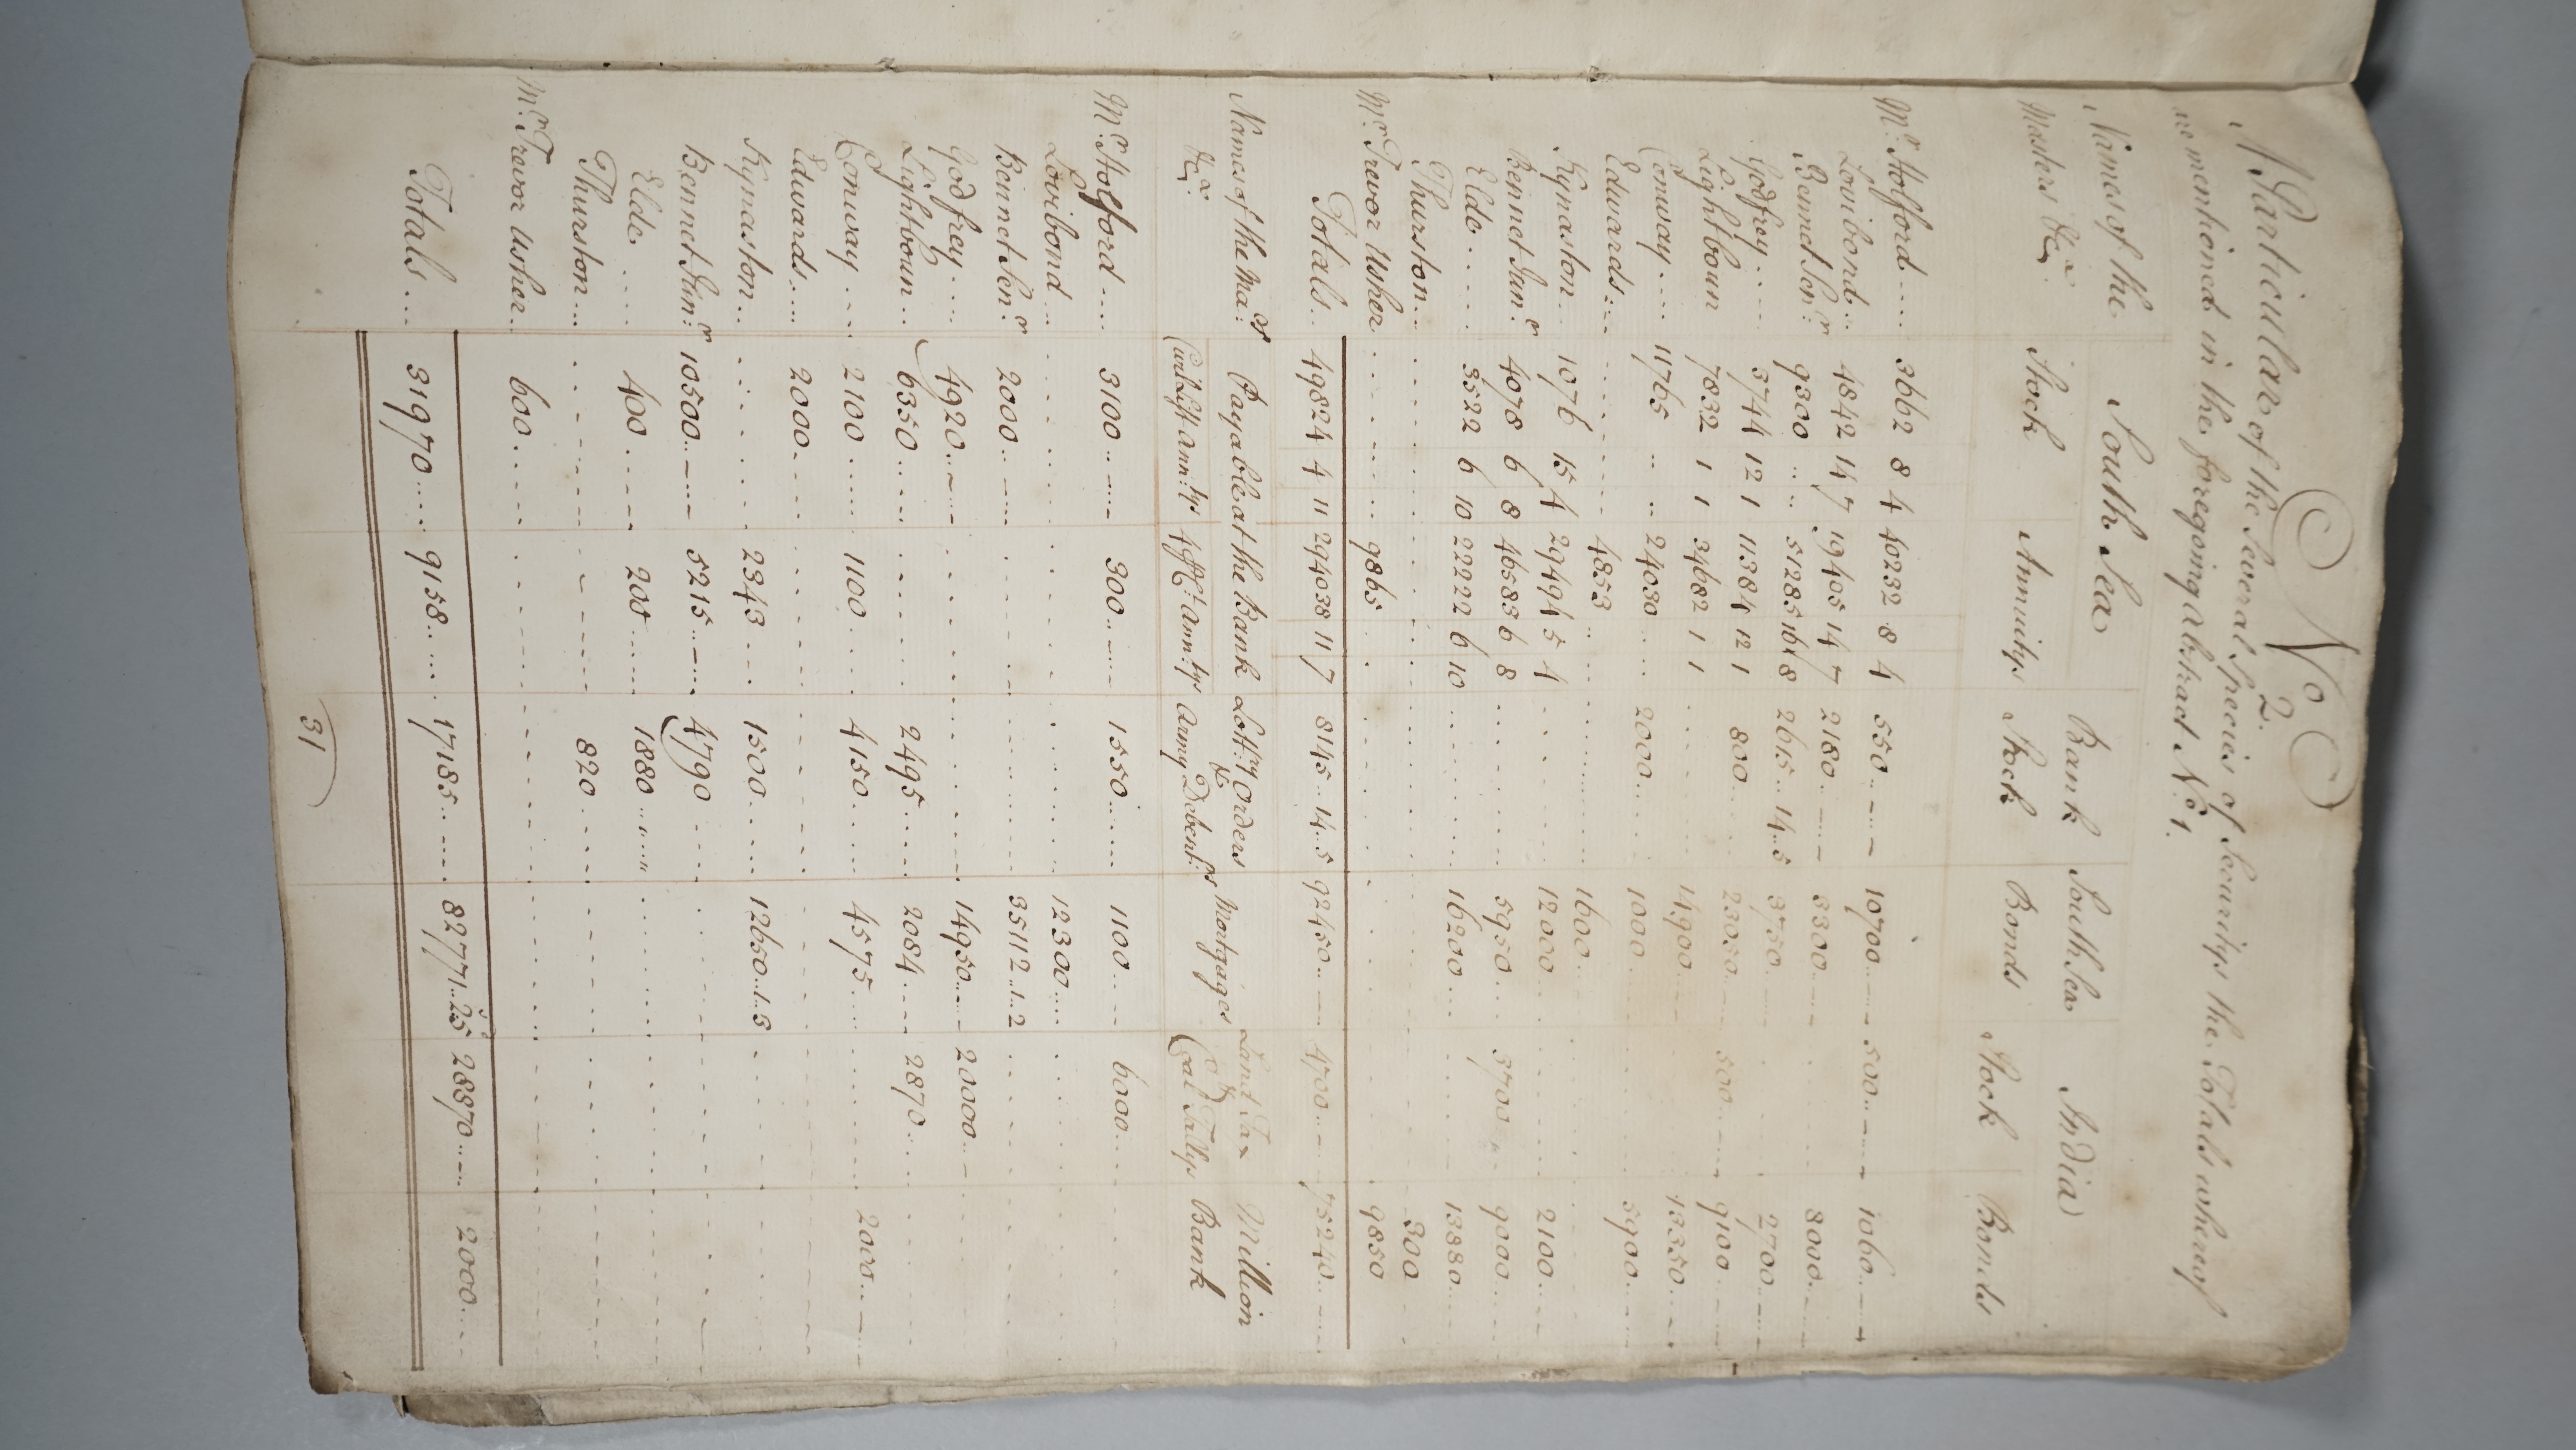 No. 2.
A Particular of the Several Species of Securitys the Totals whereof
are mentioned in the foregoing abstract No. 1.
Names of the Masters &ca. South Sea Bank South Sea India
Stock Annuitys Stock Bonds Stock Bonds
Mr. Holford .... 3662 8 4 40232 8 4 550 .. — 10700 .. — 500 .. — 1060 .. —
Lovibond ... 4842 14 7 19405 14 7 2180 .. — 3300 .. — 8000 .. —
Bennet Senr. 9300 .. .. 51285 16 8 2615 .. 14 .. 5 3750 .. 2700 .. —
Godfrey .... 3744 12 1 11384 12 1 800 .. 23050 .. — 500 .. — 9100 .. —
Lightboun 7832 1 1 34682 1 1 14900 .. 13350 .. —
Conway .... 11765 .. .. 24030 .. .. 2000 .. 1000 .. 5900 .. —
Edwards .... 4853 .. 1600 ..
Kynaston .. 1076 15 4 29494 5 4 12000 .. 2100 .. —
Bennet Junr. 4078 6 8 46583 6 8 5950 .. 3700 .. 9000 ..
Elde .... 3522 6 10 22222 6 10 16200 ... 13880 ..
Thurston .. 300
Mr. Trevor Usher 9865 .. 9850
Totals .. 49824 4 11 294038 11 7 8145 .. 14 .. 5 92450 .. — 4700 .. — 75240 .. —
Names of the Mars. &ca. Payable at the Bank Lottry Orders & Mortgages Land Tax & Million
Civil List Anntys 4 P Ct. Anntys Army Debents. Coal Tallys Bank
Mr. Holford .... 3100 .. — 300 .. — 1550 .. 1100 .. — 6000 ..
Lovibond ... 12300 ...
Bennet Senr. 2000 .. — 35112 .. 1 .. 2
Godfrey .... 4920 .. — 14950 .. — 20000 .. —
Lightboun .. 6350 .. 2495 .. 2084 .. 2870 ..
Conway .... 2100 .. 1100 .. 4150 .. 4575 .. 2000 .. —
Edwards .... 2000 ..
Kynaston ... 2343 .. 1500 .. 12650 .. 1 .. 3
Bennet Junr. 10500 .. — 5215 .. — 4790 ..
Elde .... 400 .. 200 .. 1880 ..
Thurston ... 820 ..
Mr. Trevor Usher .. 600 ..
Totals .... 31970 .. 9158 .. 17185 .. 82771 .. 2 5 28870 .. — 2000 ..
31